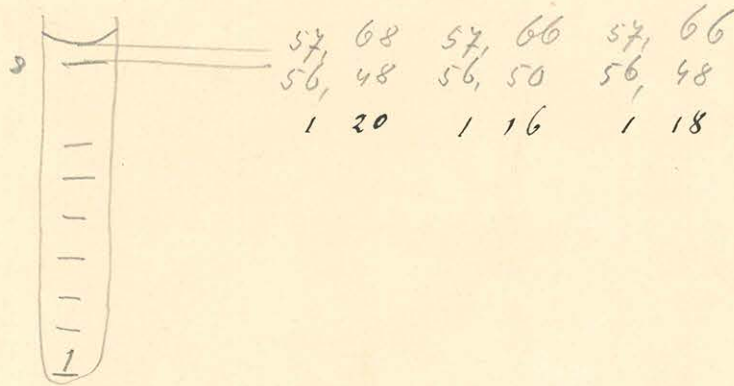 57, 68 57, 66 57, 66
8 56, 48 56, 50 56, 48
1 20 1 16 1 18
1